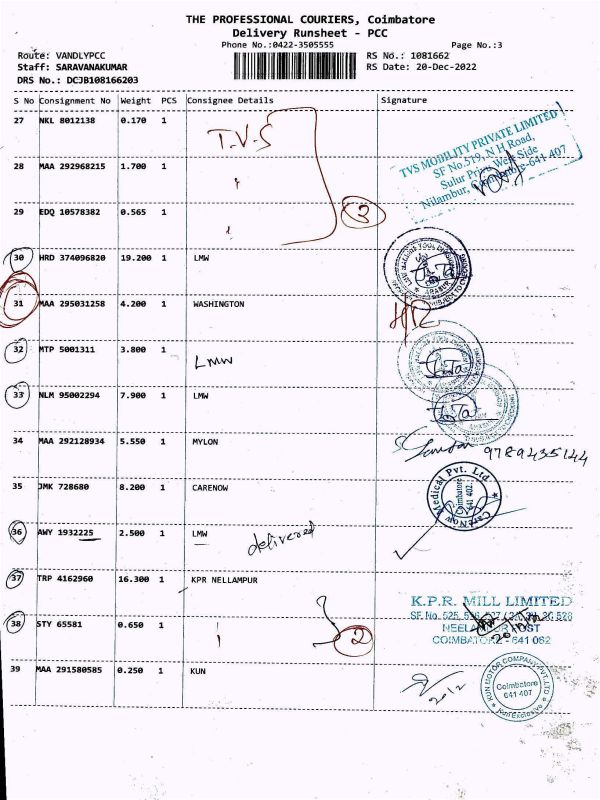 THE PROFESSIONAL COURIERS, Coimbatore
Delivery Runsheet - PCC
Phone No.:0422-3505555 Page No.:3
Route: VANDLYPCC RS No.: 1081662
Staff: SARAVANAKUMAR RS Date: 20-Dec-2022
DRS No.: DCJB108166203
S No Consignment No Weight PCS Consignee Details Signature
27 NKL 8012138 0.170 1 T.V.S
TVS MOBILITY PRIVATE LIMITED
SF No.519, N H Road,
Sulur Privu West Side
Nilambur, Coimbatore-641 407
28 MAA 292968215 1.700 1
29 EDQ 10578382 0.565 1 3
30 HRD 374096820 19.200 1 LMW
31 MAA 295031258 4.200 1 WASHINGTON
32 MTP 5001311 3.800 1 LMW
33 NLM 95002294 7.900 1 LMW
34 MAA 292128934 5.550 1 MYLON 9789435144
35 JMK 728680 8.200 1 CARENOW
CareNow Medical Pvt. Ltd
Coimbatore
641 402.
36 AWY 1932225 2.500 1 LMW delivered
37 TRP 4162960 16.300 1 KPR NELLAMPUR
K.P.R. MILL LIMITED
38 STY 65581 0.650 1 2
COIMBATORE - 641 062
39 MAA 291580585 0.250 1 KUN 20/12
KUN MOTOR COMPANY PVT. LTD
Coimbatore
641 407